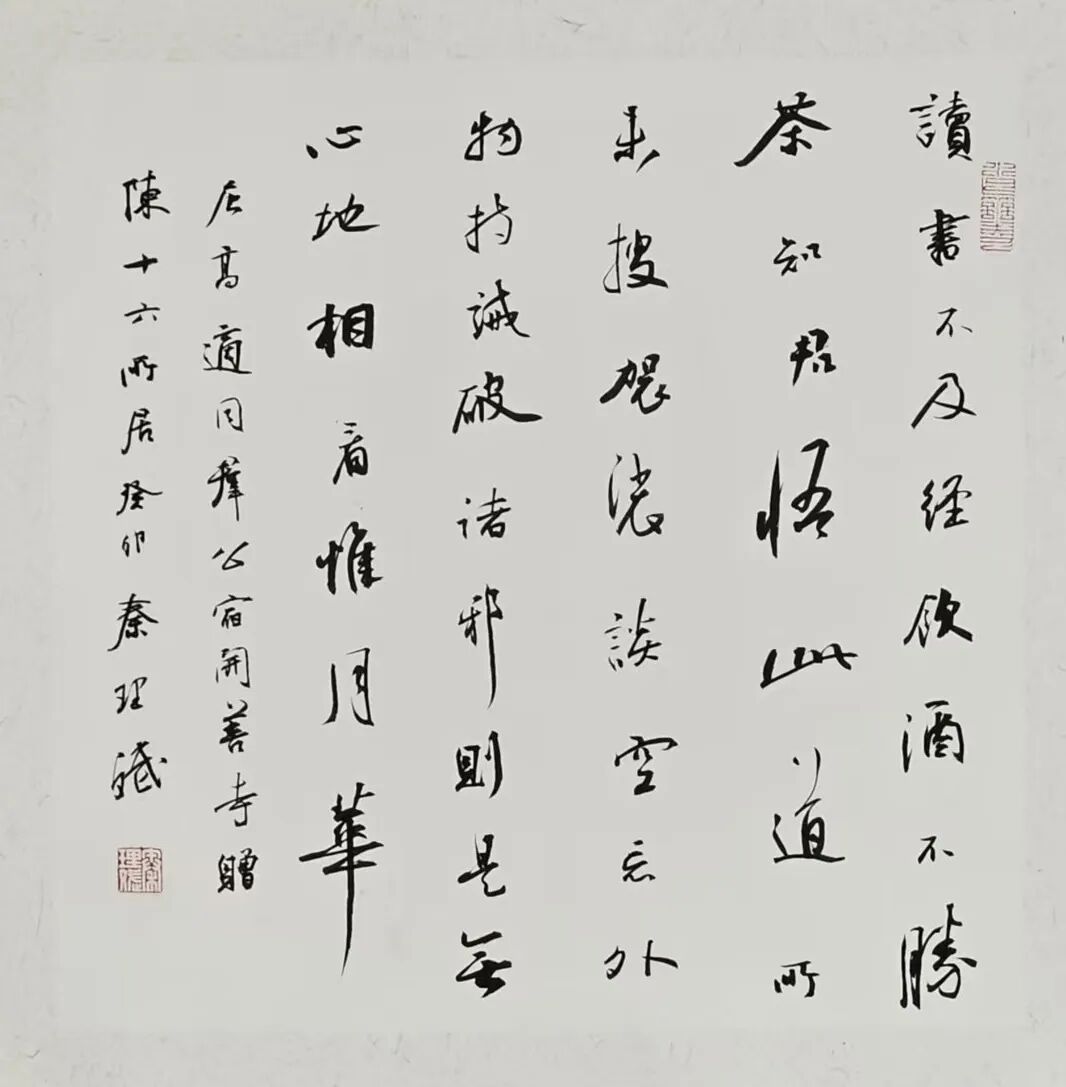 讀書不及經飲酒不勝
茶知君悟此道所
未搜袈裟談空忘外
物持誡破諸邪則是無
心地相看惟月華
右高適同羣公宿開善寺贈
陳十六所居癸卯秦理